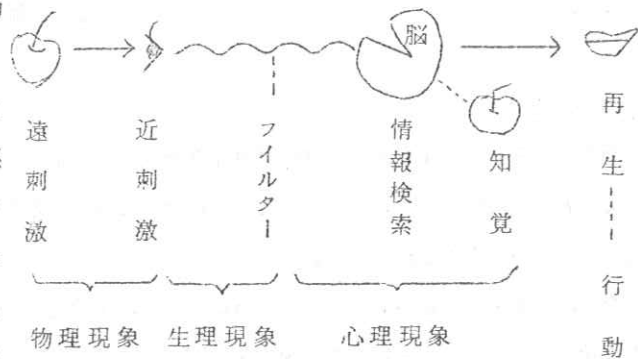 脳
遠刺激
近刺激
フイルター
情報検索
知覚
再生----行動
物理現象
生理現象
心理現象